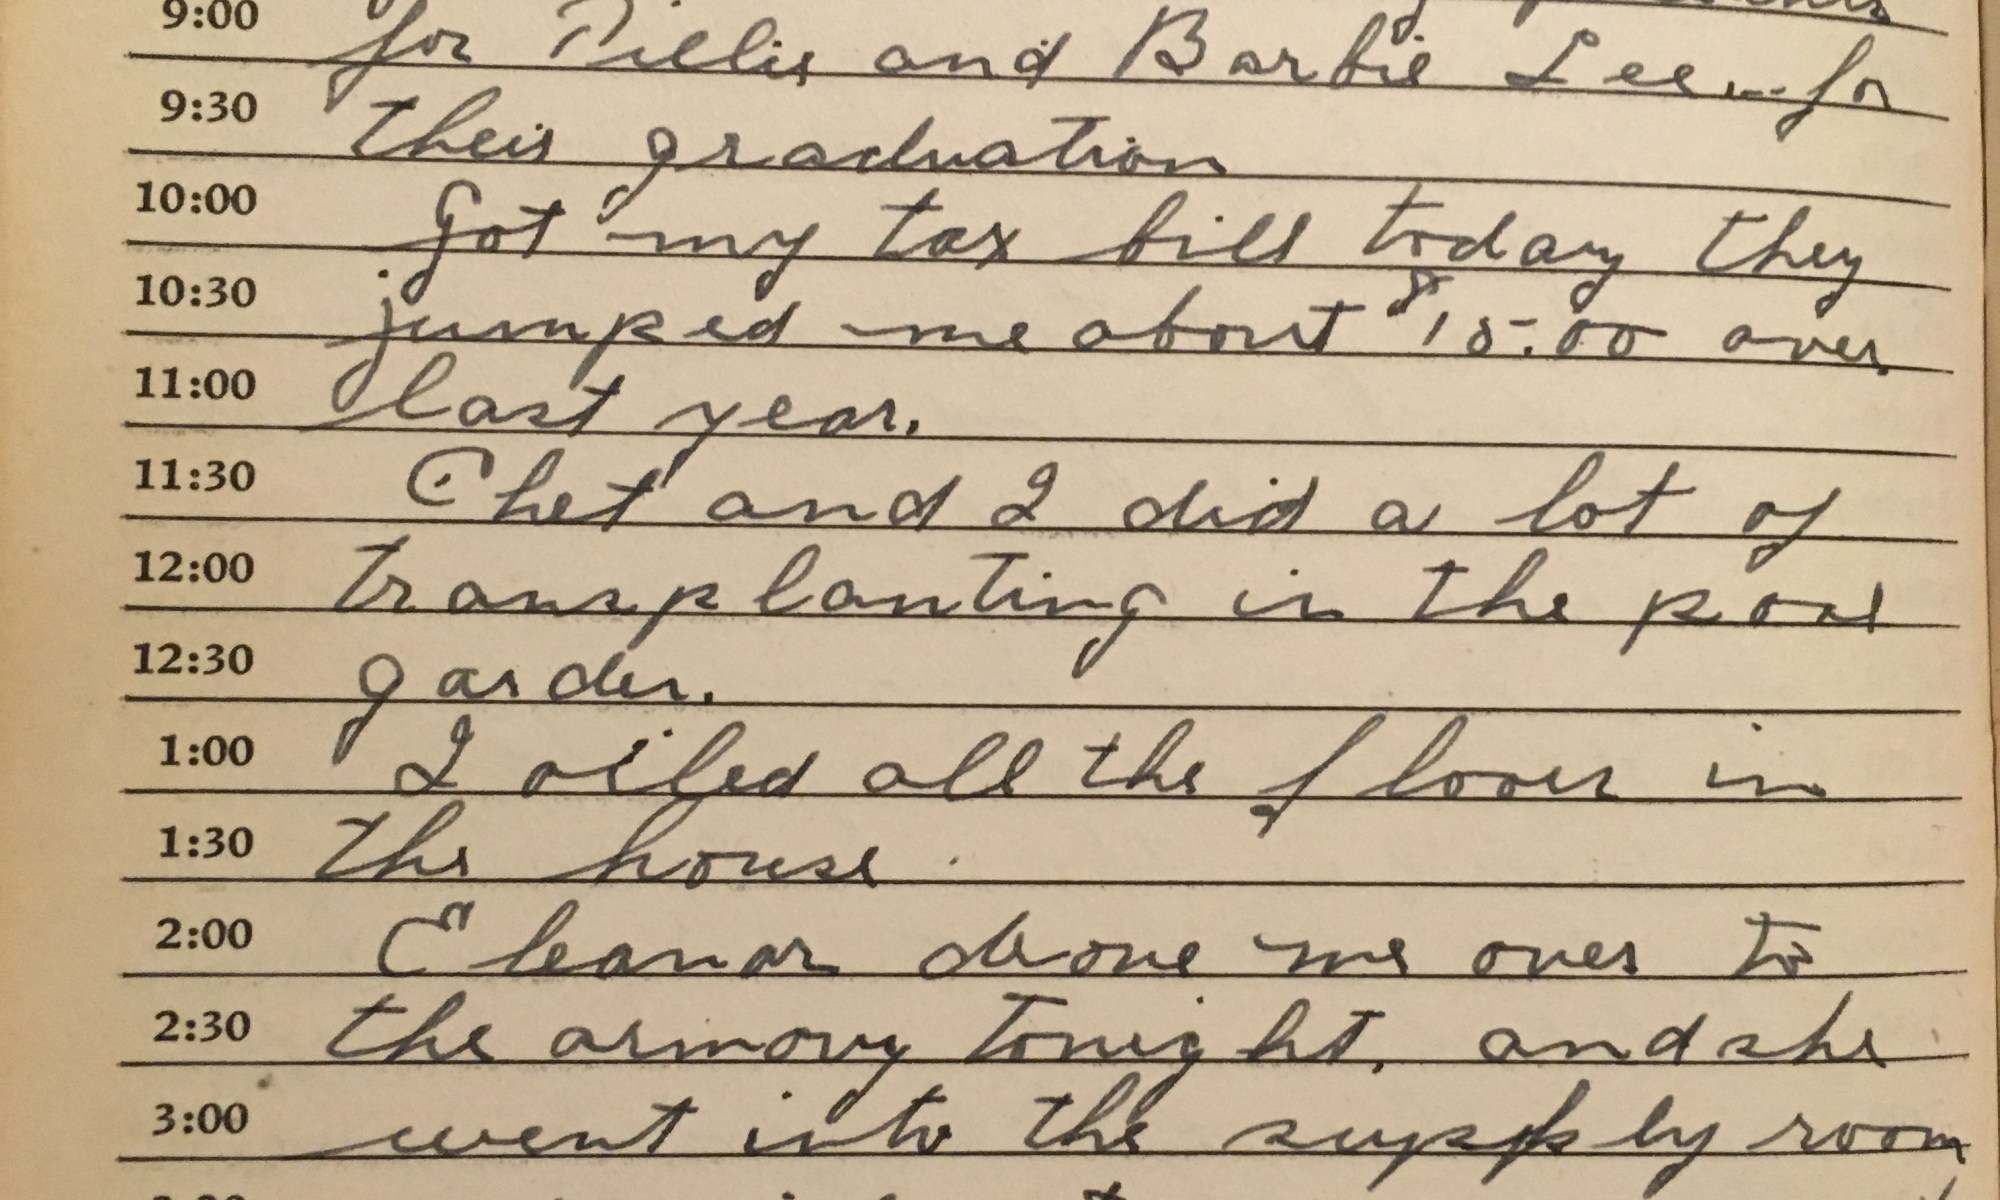 9:00 for Pillis and Barbie Lee... for
9:30 their graduation
10:00 Got my tax bill today they
10:30 jumped me about $15.00 over
11:00 last year.
11:30 Chet and I did a lot of
12:00 transplanting in the
12:30 garden.
1:00 I oiled all the floors in
1:30 the house.
2:00 Eleanor drove me over to
2:30 the armory tonight, and she
3:00 went into the supply room